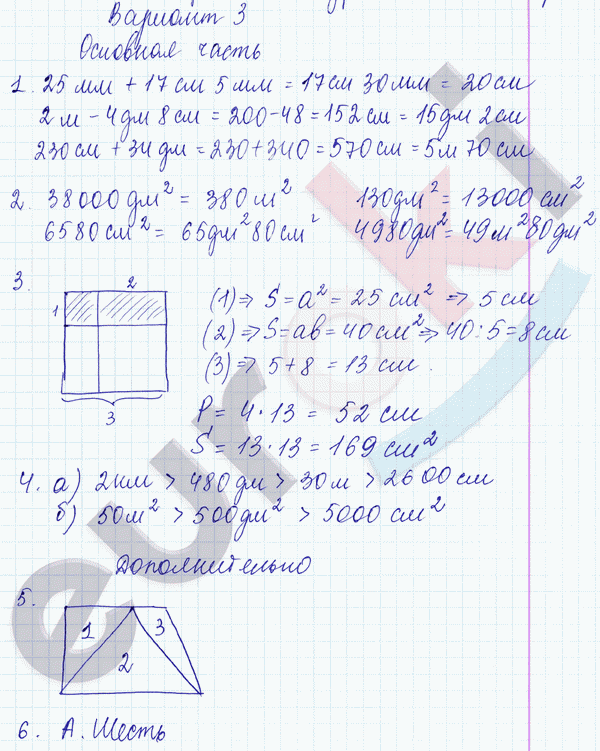 Вариант 3
Основная часть
1. 25 мм + 17 см 5 мм = 17 см 30 мм = 20 см
2 м - 4 дм 8 см = 200 - 48 = 152 см = 15 дм 2 см
230 см + 34 дм = 230 + 340 = 570 см = 5 м 70 см
2. 38000 дм² = 380 м² 130 дм² = 13000 см²
6580 см² = 65 дм² 80 см² 4980 дм² = 49 м² 80 дм²
3. 2
1
3
(1) ⇒ S = a² = 25 см² ⇒ 5 см
(2) ⇒ S = ав = 40 см² ⇒ 40 : 5 = 8 см
(3) ⇒ 5 + 8 = 13 см.
P = 4 · 13 = 52 см
S = 13 · 13 = 169 см²
4. а) 2 км > 480 дм > 30 м > 2600 см
б) 50 м² > 500 дм² > 5000 см²
Дополнительно
5.
1 2 3
6. А. Шесть
euroki